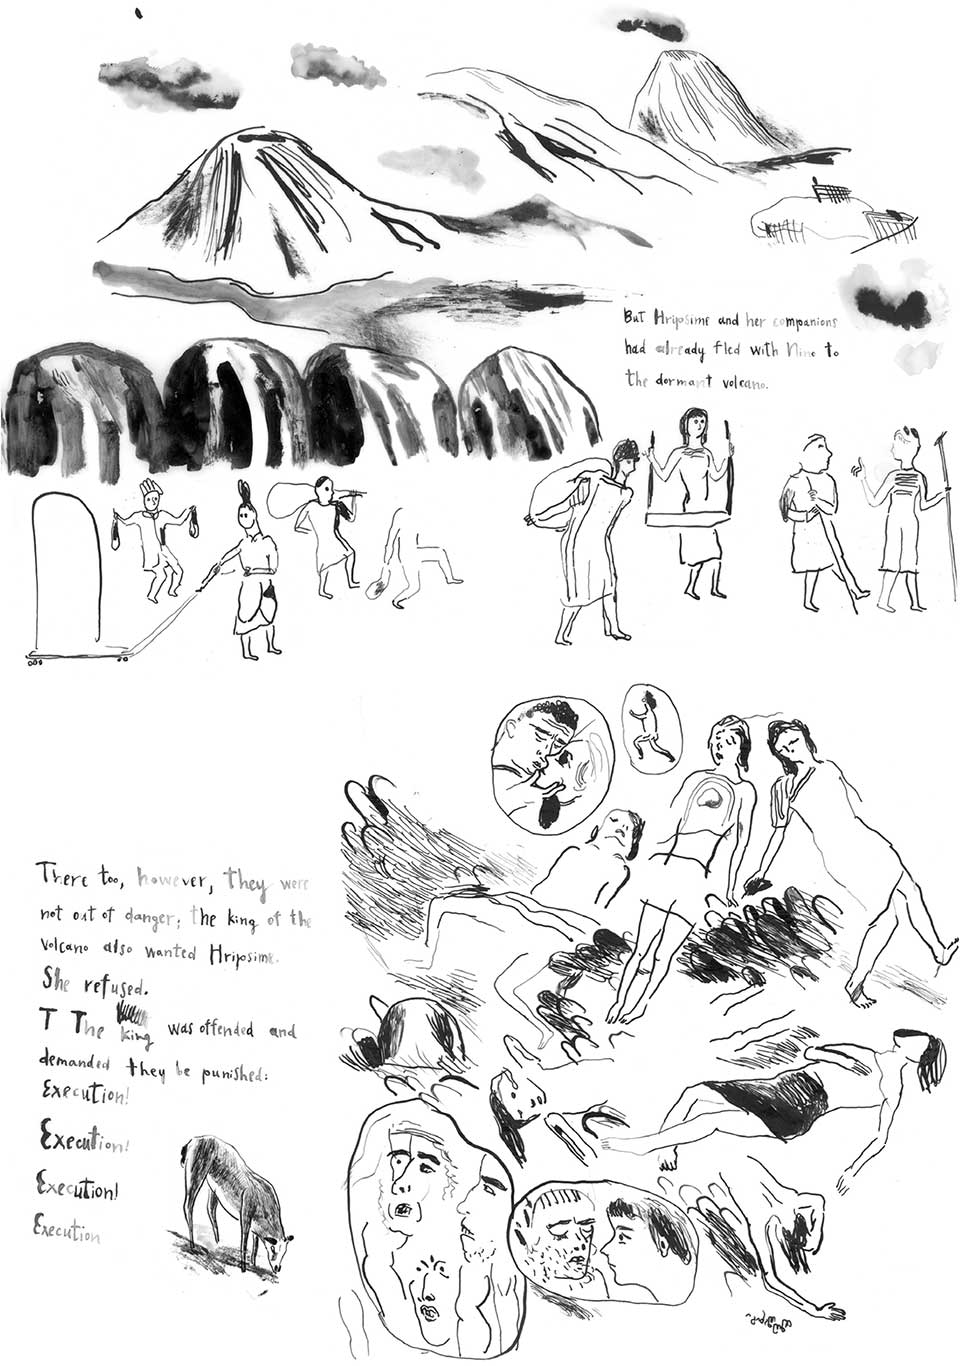 But Hripsime and her companions
had already fled with Nino to
the dormant volcano.
There too, however, they were
not out of danger; the king of the
volcano also wanted Hripsime.
She refused.
T The king was offended and
demanded they be punished:
Execution!
Execution!
Execution!
Execution